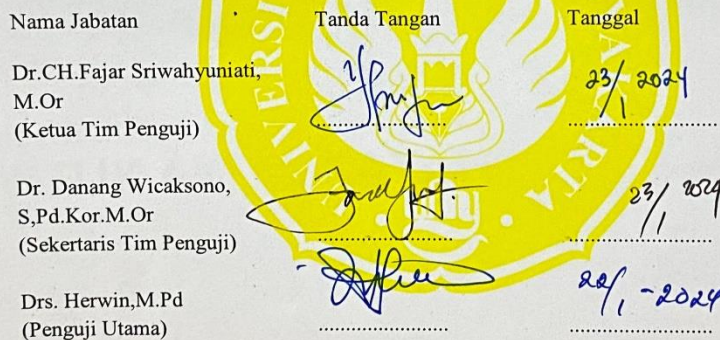 Nama Jabatan Tanda Tangan Tanggal
UNIVERSI YAKARTA
Dr.CH.Fajar Sriwahyuniati,
M.Or
(Ketua Tim Penguji) .......................... 23/1 2024
Dr. Danang Wicaksono,
S,Pd.Kor.M.Or
(Sekertaris Tim Penguji) .......................... 23/1 2024
Drs. Herwin,M.Pd
(Penguji Utama) .......................... 22/1 -2024